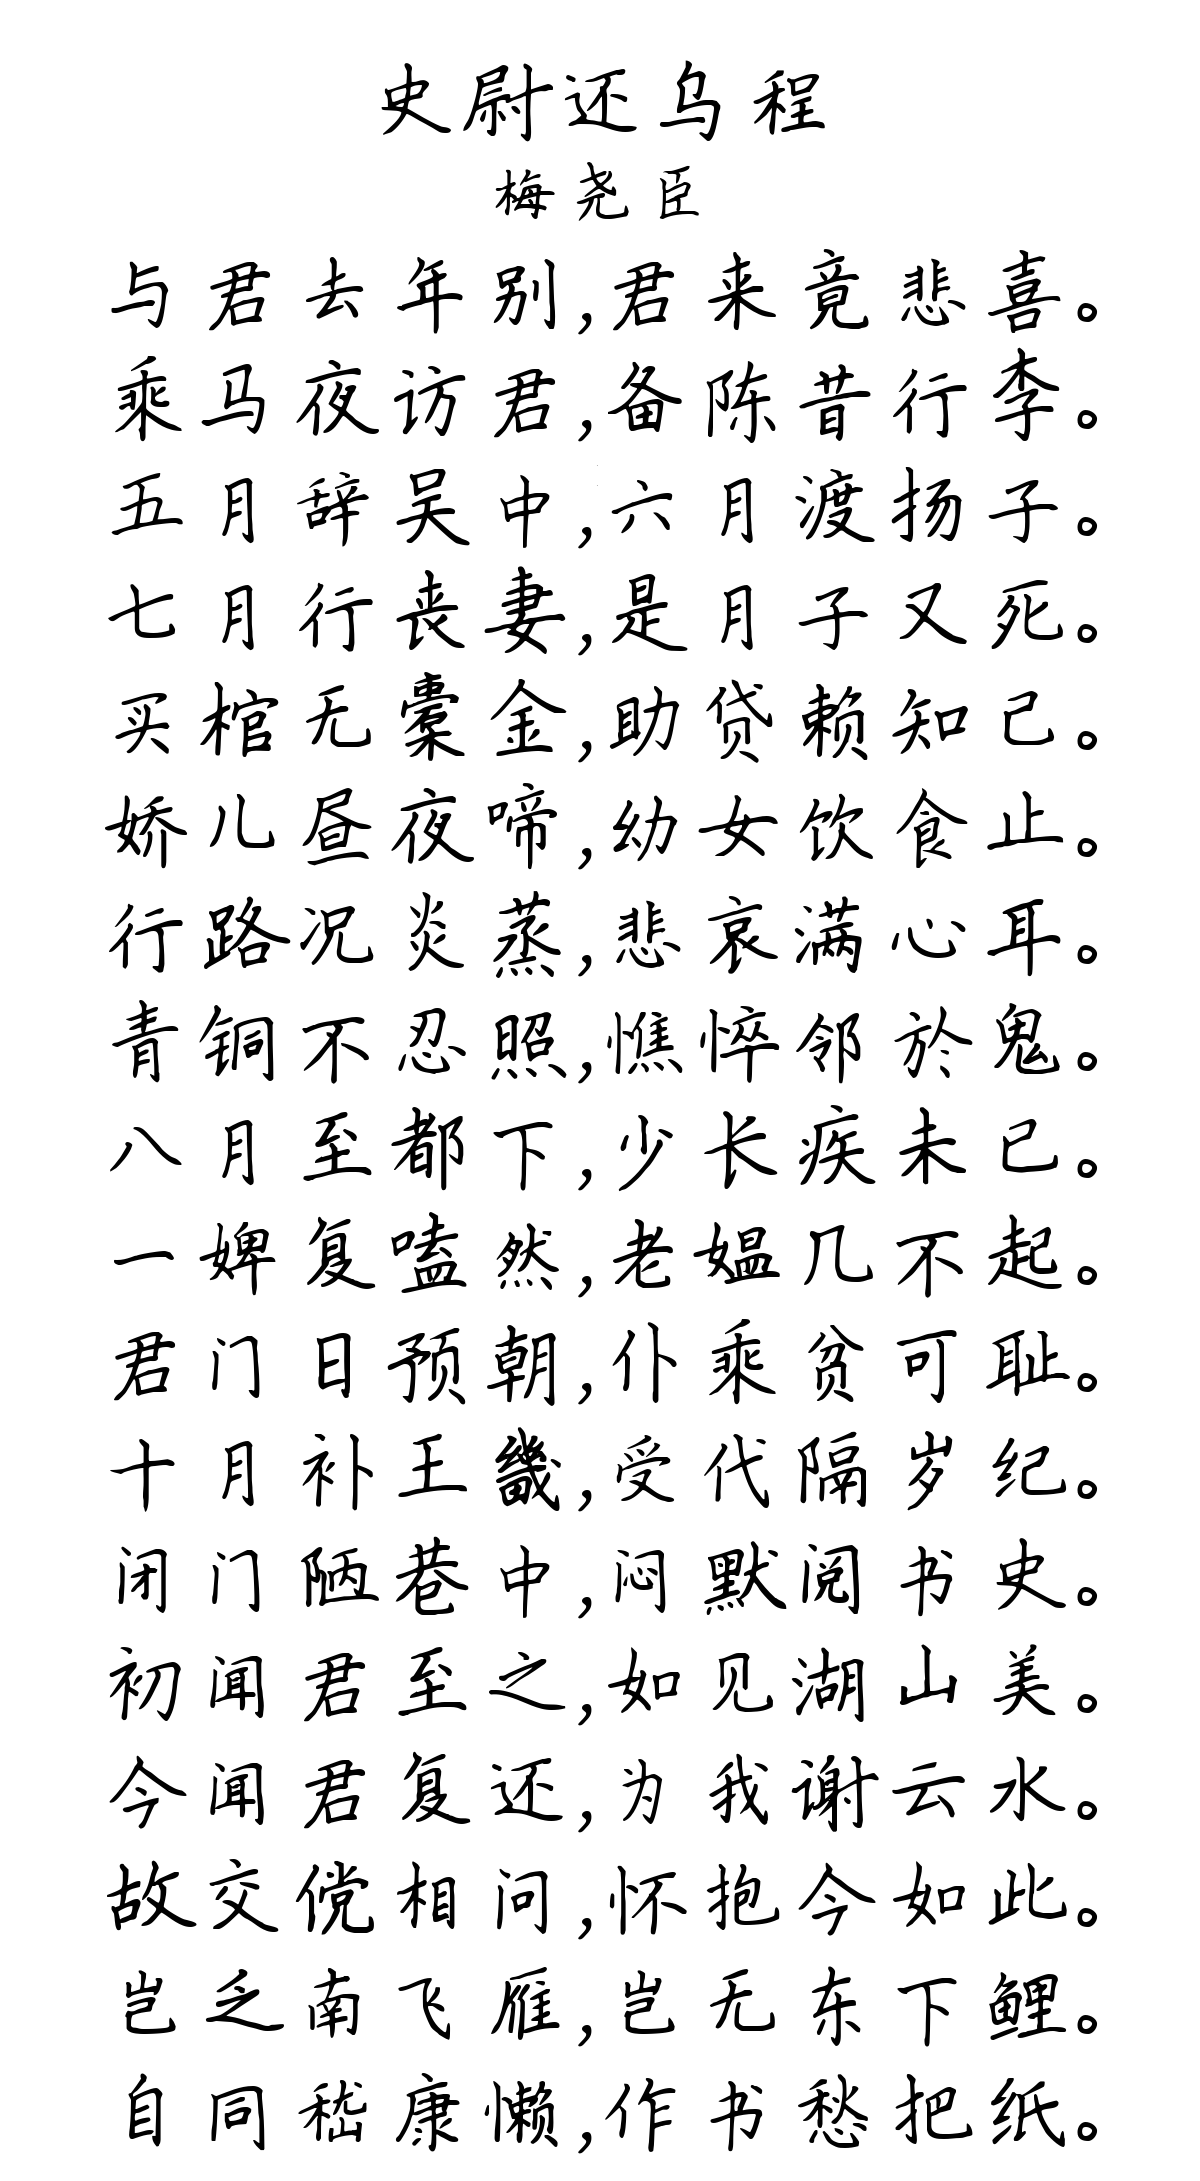 史尉还乌程
梅尧臣
与君去年别,君来竟悲喜。
乘马夜访君,备陈昔行李。
五月辞吴中,六月渡扬子。
七月行丧妻,是月子又死。
买棺无橐金,助贷赖知己。
娇儿昼夜啼,幼女饮食止。
行路况炎蒸,悲哀满心耳。
青铜不忍照,憔悴邻於鬼。
八月至都下,少长疾未已。
一婢复嗑然,老媪几不起。
君门日预朝,仆乘贫可耻。
十月补王畿,受代隔岁纪。
闭门陋巷中,闷默阅书史。
初闻君至之,如见湖山美。
今闻君复还,为我谢云水。
故交傥相问,怀抱今如此。
岂乏南飞雁,岂无东下鲤。
自同嵇康懒,作书愁把纸。